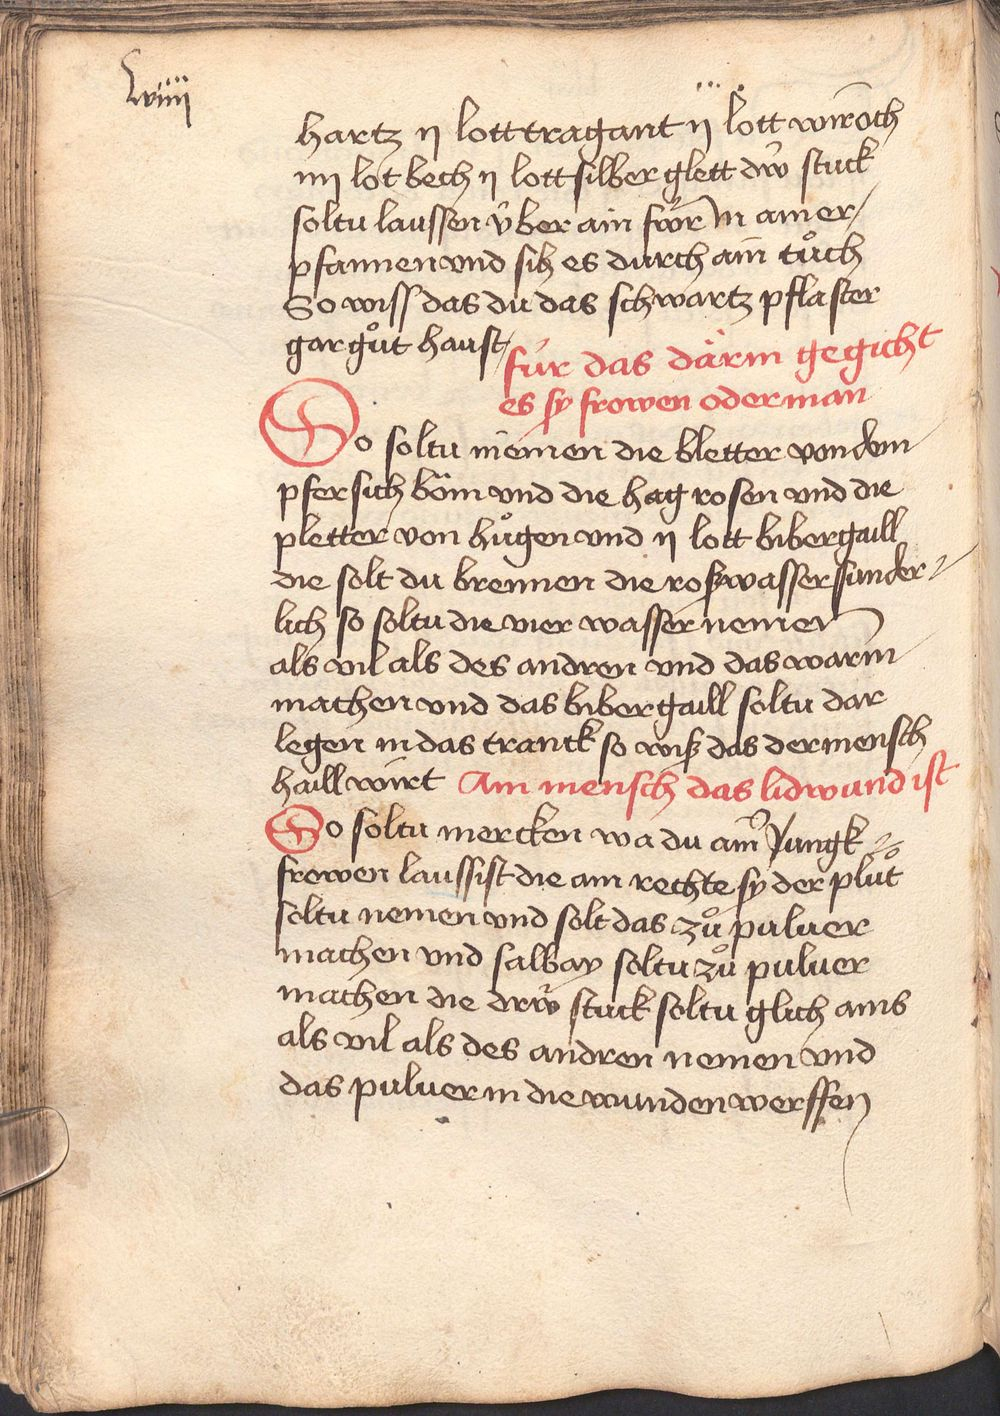 Lviiii
hartz ij lott tragant ij lott wiroͤch
iiij lot bech ij lott silber glett drw̎ stuck
soltu laussen v̎ber ain fwr̎ in ainer
pfannen vnd sih es durch ain̄ tuͦch
So wiss das du das schwartz pflaster
gar guͦt haust
fúr das därm gegicht
es sy frowen oder man
So soltu niemen die bletter von dem
pfersich böm vnd die hag rosen vnd die
pletter von huͦgen vnd ij lott bibergaill
die solt du brennen die roßwasser sunder
lich so soltu die vier wasser nemen
als vil als des andren vnd das warm
machen vnd das bibergaill soltu dar
legen in das tranck so wiß das der mensch
haill wirt
Ain mensch das lidwund ist
So soltu mercken wa du ainͤ Jungk
frowen laussist die ain rechte sy der pluͦt
soltu nemen vnd solt das zuͦ puluer
machen vnd salbay soltu zuͦ puluer
machen die drw̎ stuck soltu glich ains
als vil als des andren nemen vnd
das puluer in die wunden werffen